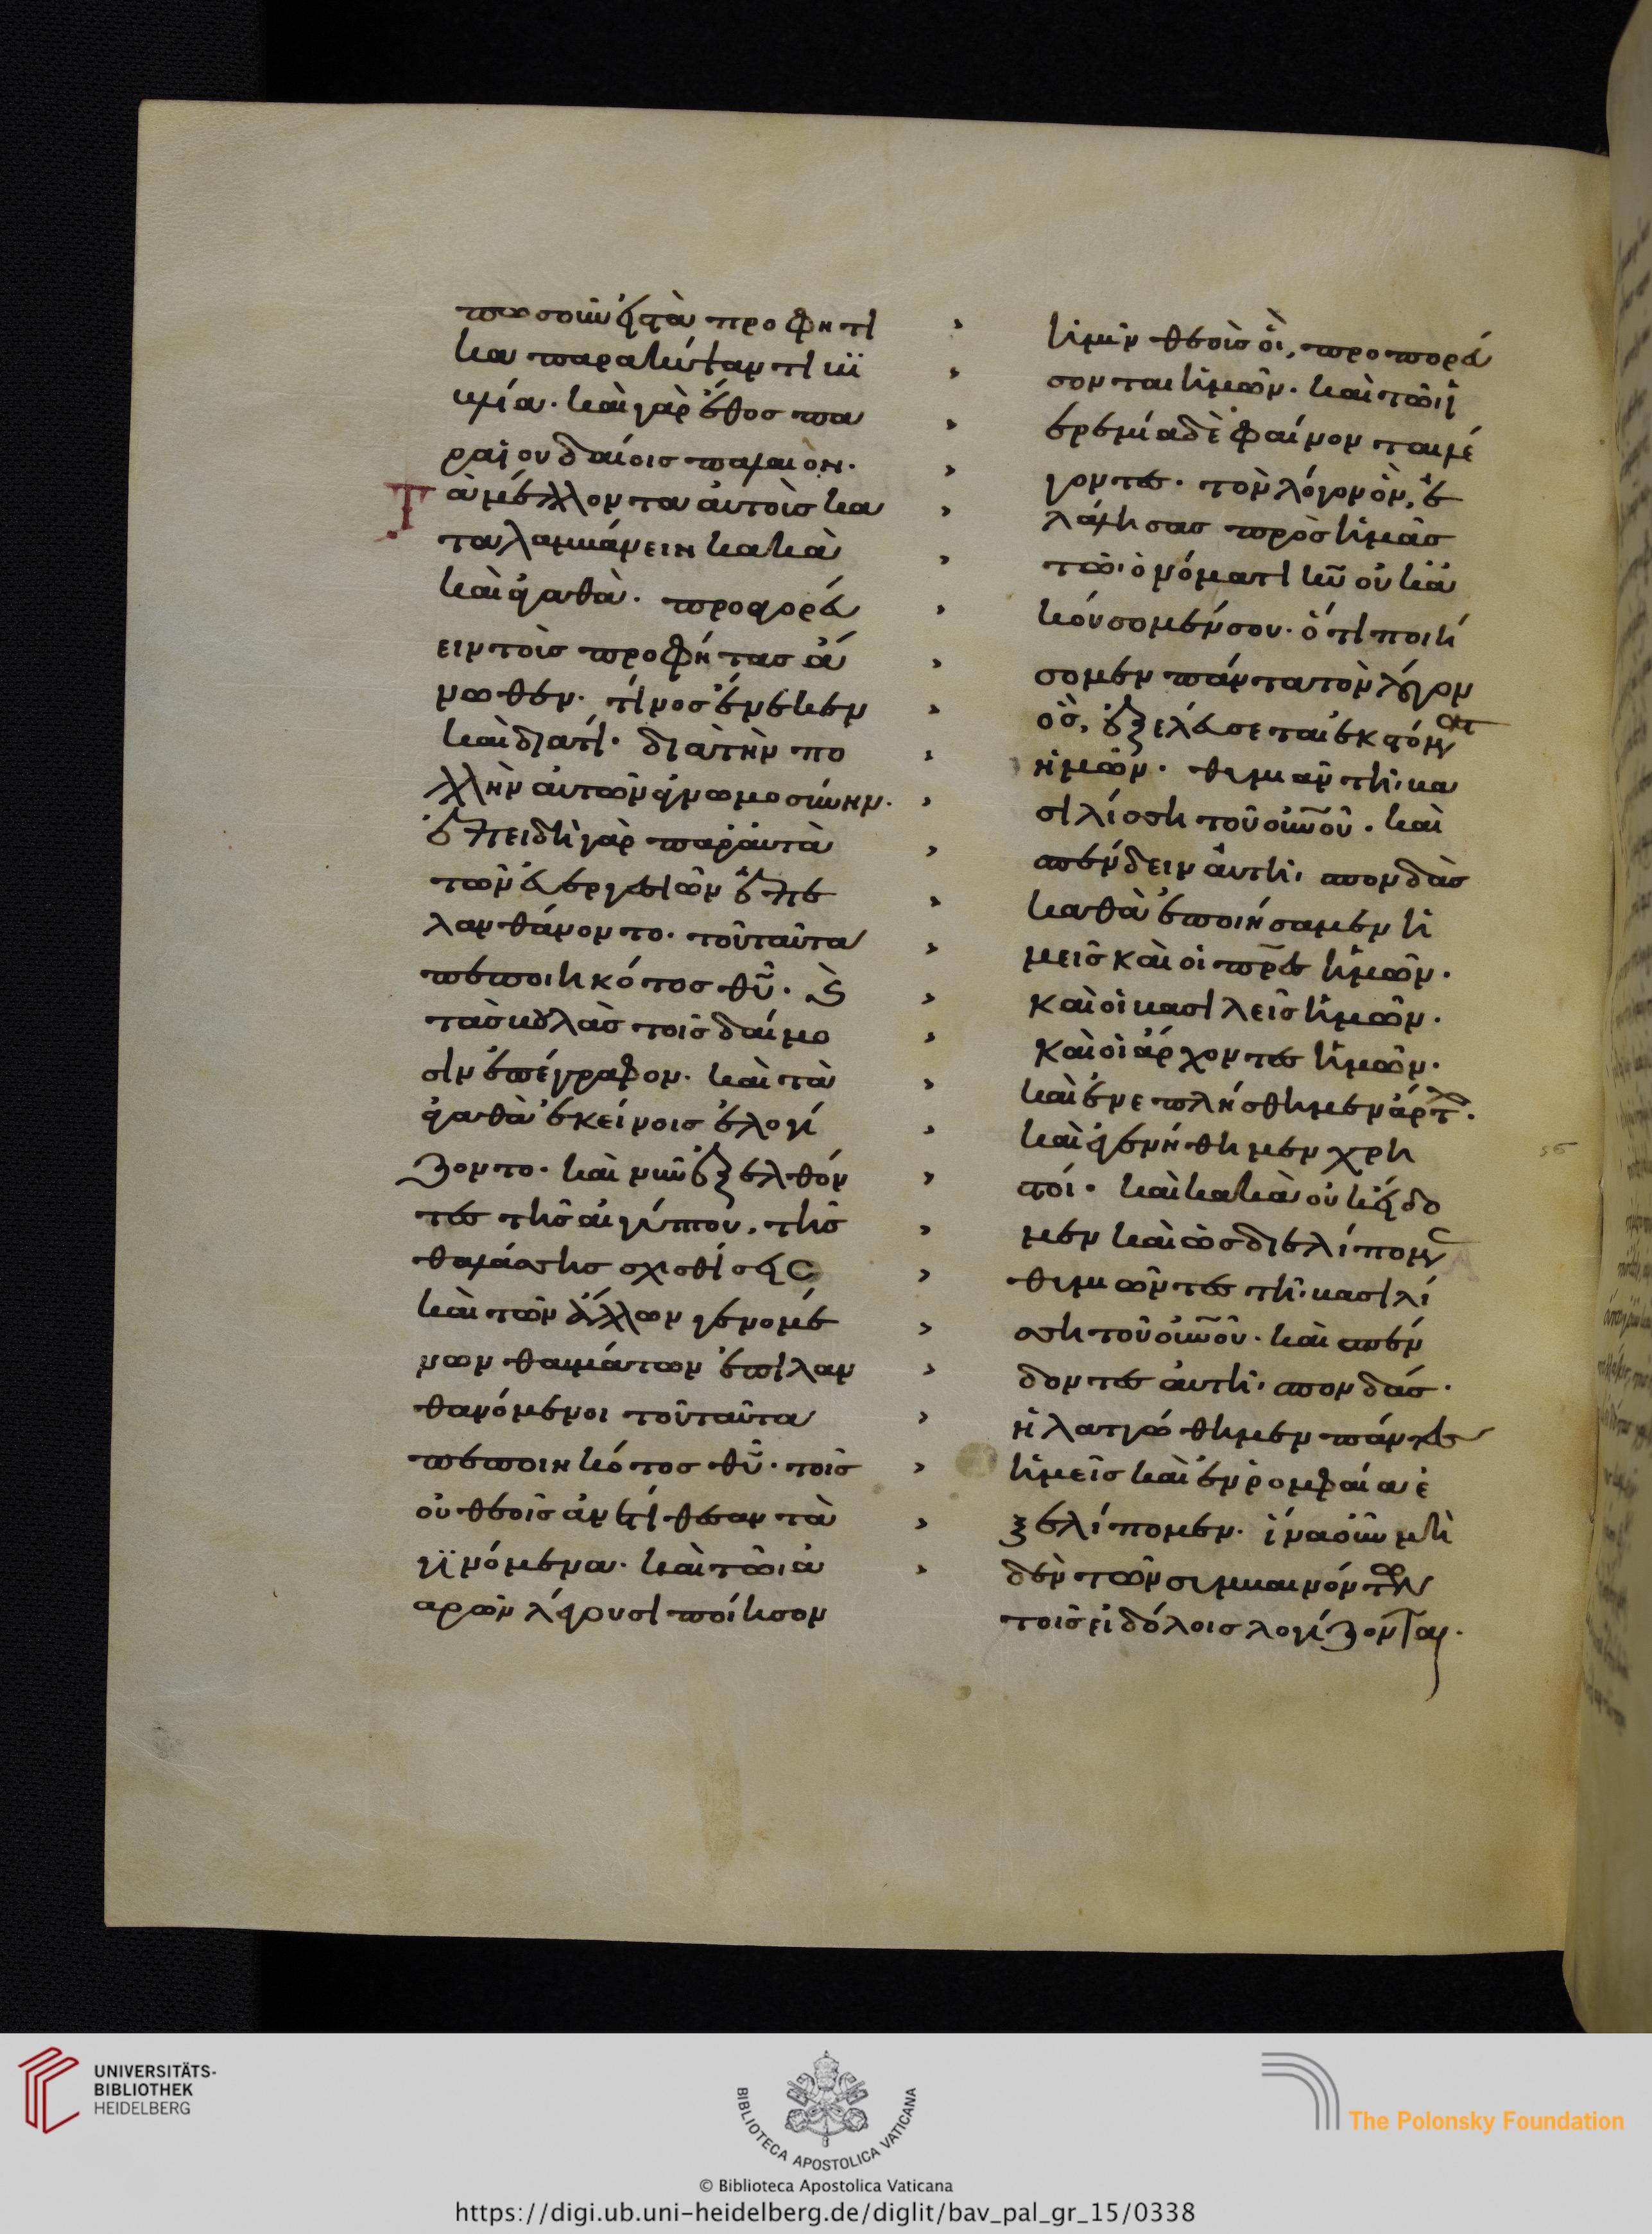 πωσοῦν ἐς τὰ προφητι
κὰ παρακύψαντι βϊ
βλία. καὶ γὰρ ἔθος πα
ρα ἰουδαίοις παλαιὸν.
Τὰ μέλλοντα αὐτοῖς κα
ταλαμβάνειν κακὰ
καὶ ἀγαθὰ. προαγορεύ
ειν τοῖς προφήτας ἄ
νωθεν. τίνος ἕνεκεν
καὶ διατί. διὰ τὴν πο
λλὴν αὐτῶν ἀγνωμοσύνην.
ἐπειδὴ γὰρ παρ αὐτὰ
τῶν εὐεργεσιῶν ἐπε
λανθάνοντο. τοῦ ταῦτα
πεποιηκότος θῦ. καὶ
τὰς βουλὰς τοῖς δαίμο
σιν ἐπέγραφον. καὶ τὰ
ἀγαθὰ ἐκείνοις ἐλογί
ζοντο. καὶ νῦν ἐξελθόν
τες τῆς αἰγύπτου. τῆς
θαλάσσης σχισθίσης
καὶ τῶν ἄλλων γενομέ
νων θαυμάτων ἐπιλαν
θανόμενοι τοῦ ταῦτα
πεποιηκότος θῦ. τοῖς
οὐ θεοῖς ἀνετίθεσαν τὰ
γϊνόμενα. καὶ τῶι ἀ
αρὼν λέγουσι ποίησον
ἡμῖν θεοὶς οἳ, προπορεύ
σονται ἡμῶν. καὶ τῶι ἱ
ερεμία δὲ φαίνονται λέ
γοντες. τὸν λόγον ὃν, ἐ
λάλησας πρὸς ἡμᾶς
τῶι ὀνόματι κῦ οὐκ ἀ
κούσομέν σου. ὅτι ποιή
σομεν πάντα τὸν λόγον
ὃς, ἐξελεύσεται ἐκ στόματ
ἡμῶν. θυμιᾶν τῆι βα
σιλίσσηι τοῦ οὐνοῦ. καὶ
σπένδειν αὐτῆι σπονδὰς
καθὰ ἐποιήσαμεν ἡ
μεῖς καὶ οἱ πρες ἡμῶν.
καὶ οἱ βασιλεῖς ἡμῶν.
καὶ οἱ ἄρχοντες ἡμῶν.
καὶ ἐνεπλήσθημεν ἄρτων.
καὶ ἐγενήθημεν χρη
στοί. καὶ κακὰ οὐκ εἴδο
μεν καὶ ὡς διελίπομεν
θυμιῶντες τῆι βασιλί
σσηι τοῦ οὐνοῦ. καὶ σπέν
δοντες αὐτῆι σπονδάς.
ἠλαττώθημεν πάντες
ἡμεῖς καὶ ἐν ρομφαία ἐ
ξελίπομεν. ἵνα οὖν μὴ
δὲν τῶν συμβαινόντων
τοῖς εἰδόλοις λογίζονται.
UNIVERSITÄTS-
BIBLIOTHEK
HEIDELBERG
BIBLIOTECA APOSTOLICA VATICANA
© Biblioteca Apostolica Vaticana
https://digi.ub.uni-heidelberg.de/diglit/bav_pal_gr_15/0338
The Polonsky Foundation